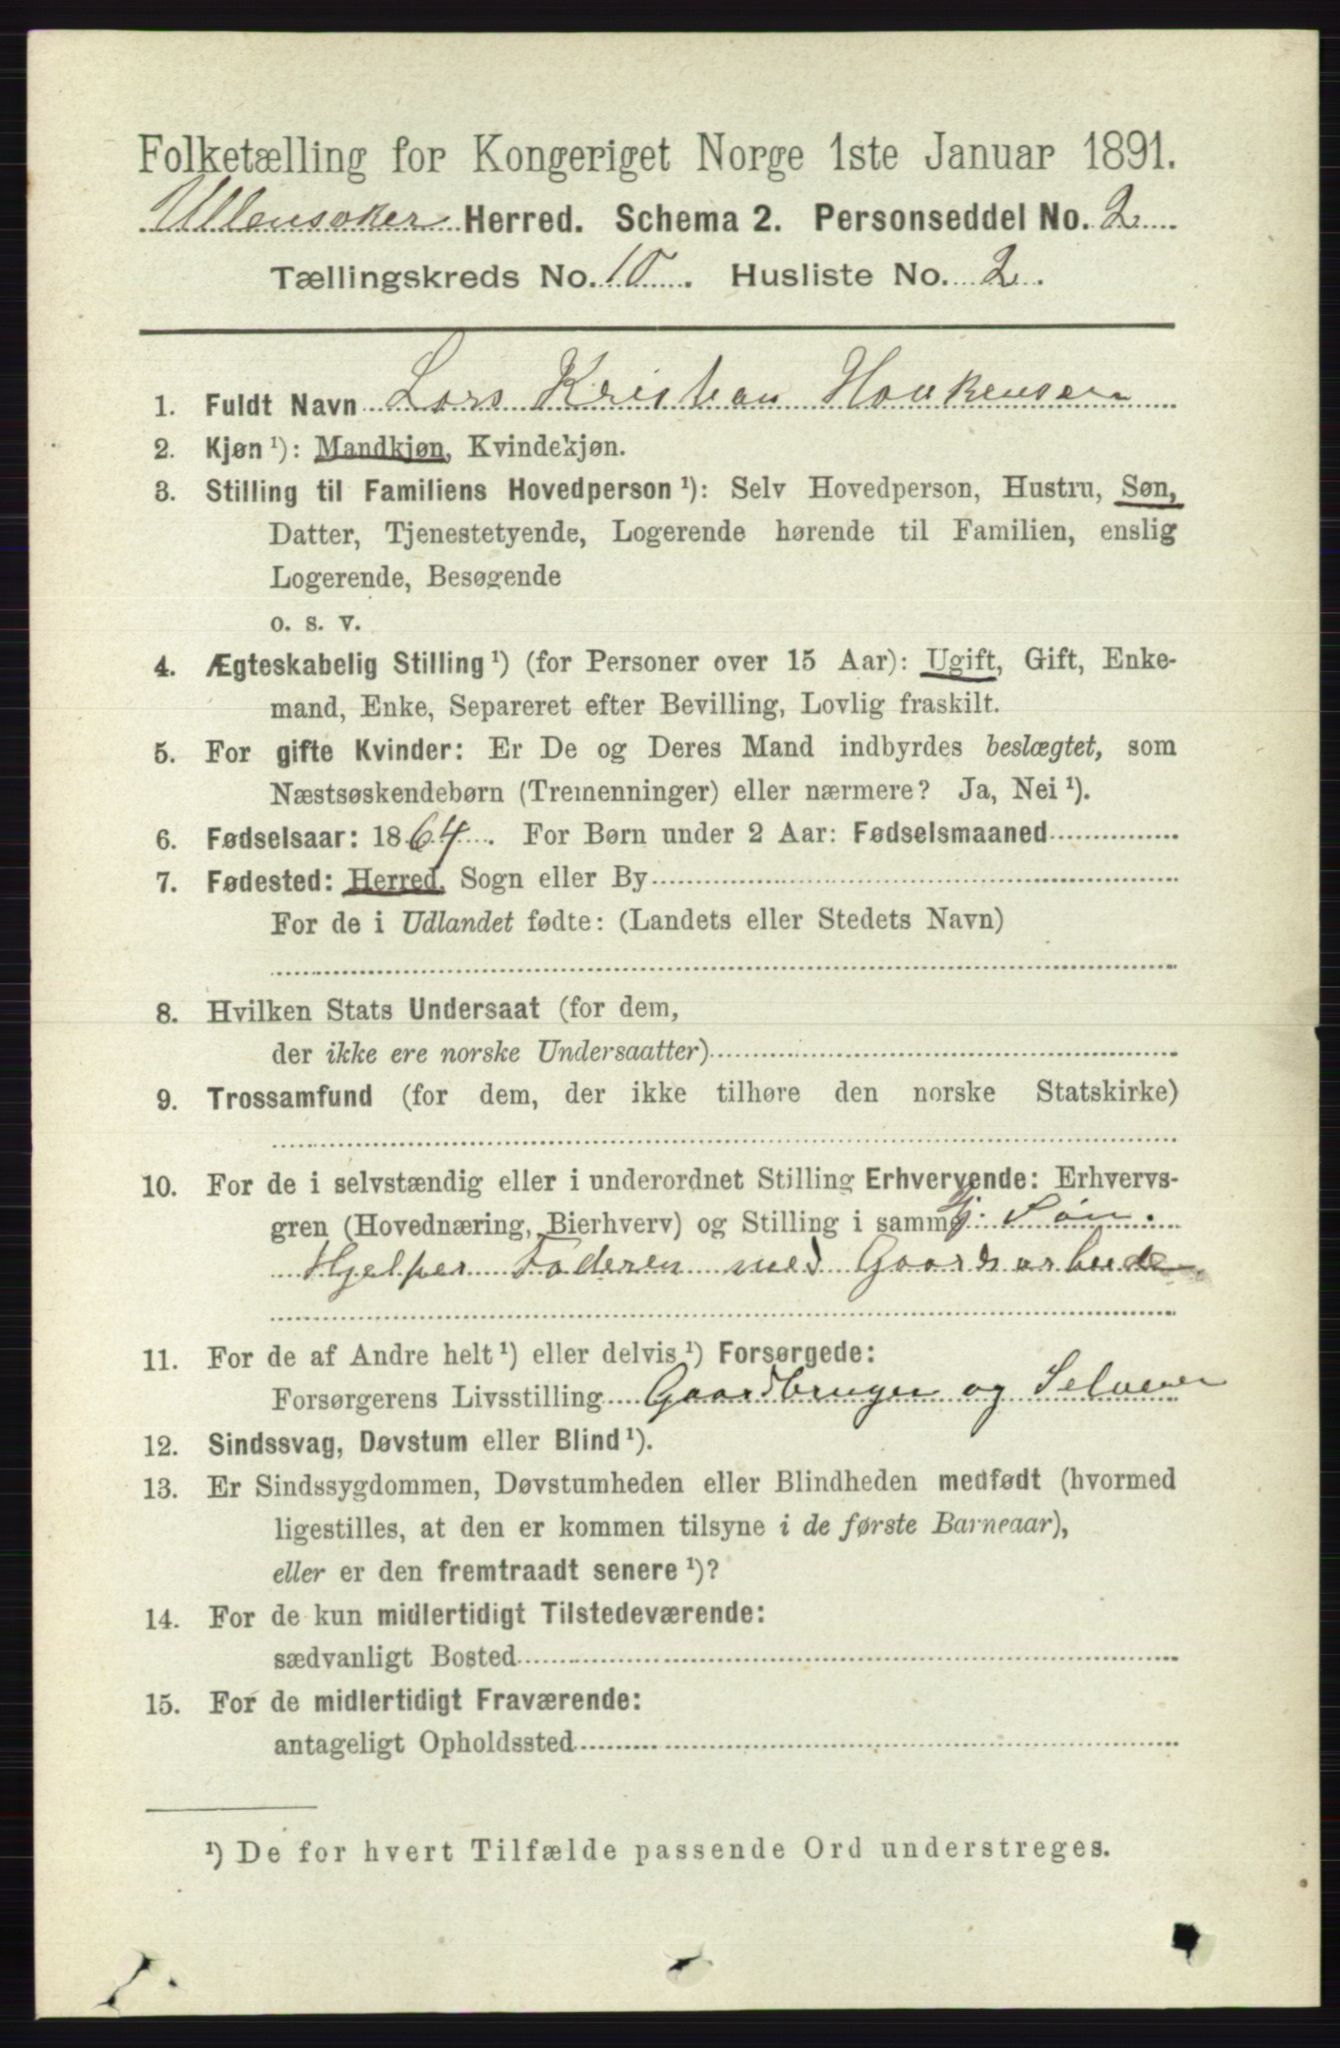 Folketælling for Kongeriget Norge 1ste Januar 1891.
Ullensaker Herred. Schema 2. Personseddel No. 2
Tællingskreds No. 10. Husliste No. 2.
1. Fuldt Navn Lars Kristian Haakensen
2. Kjøn ¹): Mandkjøn, Kvindekjøn.
3. Stilling til Familiens Hovedperson ¹): Selv Hovedperson, Hustru, Søn,
Datter, Tjenestetyende, Logerende hørende til Familien, enslig
Logerende, Besøgende
o. s. v.
4. Ægteskabelig Stilling ¹) (for Personer over 15 Aar): Ugift, Gift, Enke-
mand, Enke, Separeret efter Bevilling, Lovlig fraskilt.
5. For gifte Kvinder: Er De og Deres Mand indbyrdes beslægtet, som
Næstsøskendebørn (Tremenninger) eller nærmere? Ja, Nei ¹).
6. Fødselsaar: 1864. For Børn under 2 Aar: Fødselsmaaned
7. Fødested: Herred, Sogn eller By
For de i Udlandet fødte: (Landets eller Stedets Navn)
8. Hvilken Stats Undersaat (for dem,
der ikke ere norske Undersaatter)
9. Trossamfund (for dem, der ikke tilhøre den norske Statskirke)
10. For de i selvstændig eller i underordnet Stilling Erhvervende: Erhvervs-
gren (Hovednæring, Bierhverv) og Stilling i samme Søn.
Hjelper Faderen med Gaardsarbeide
11. For de af Andre helt ¹) eller delvis ¹) Forsørgede:
Forsørgerens Livsstilling Gaardbruger og Selveier
12. Sindssvag, Døvstum eller Blind ¹).
13. Er Sindssygdommen, Døvstumheden eller Blindheden medfødt (hvormed
ligestilles, at den er kommen tilsyne i de første Barneaar),
eller er den fremtraadt senere ¹)?
14. For de kun midlertidigt Tilstedeværende:
sædvanligt Bosted
15. For de midlertidigt Fraværende:
antageligt Opholdssted
¹) De for hvert Tilfælde passende Ord understreges.